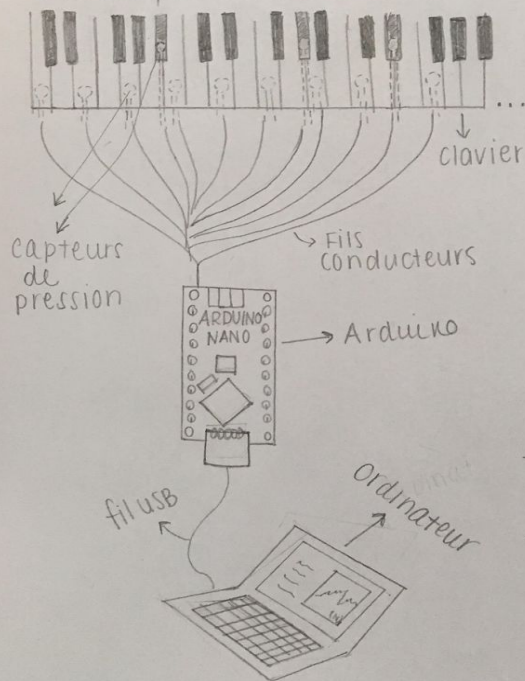 ...
clavier
capteurs
de
pression
Fils
conducteurs
ARDUINO
NANO
Arduino
fil USB
ordinateur